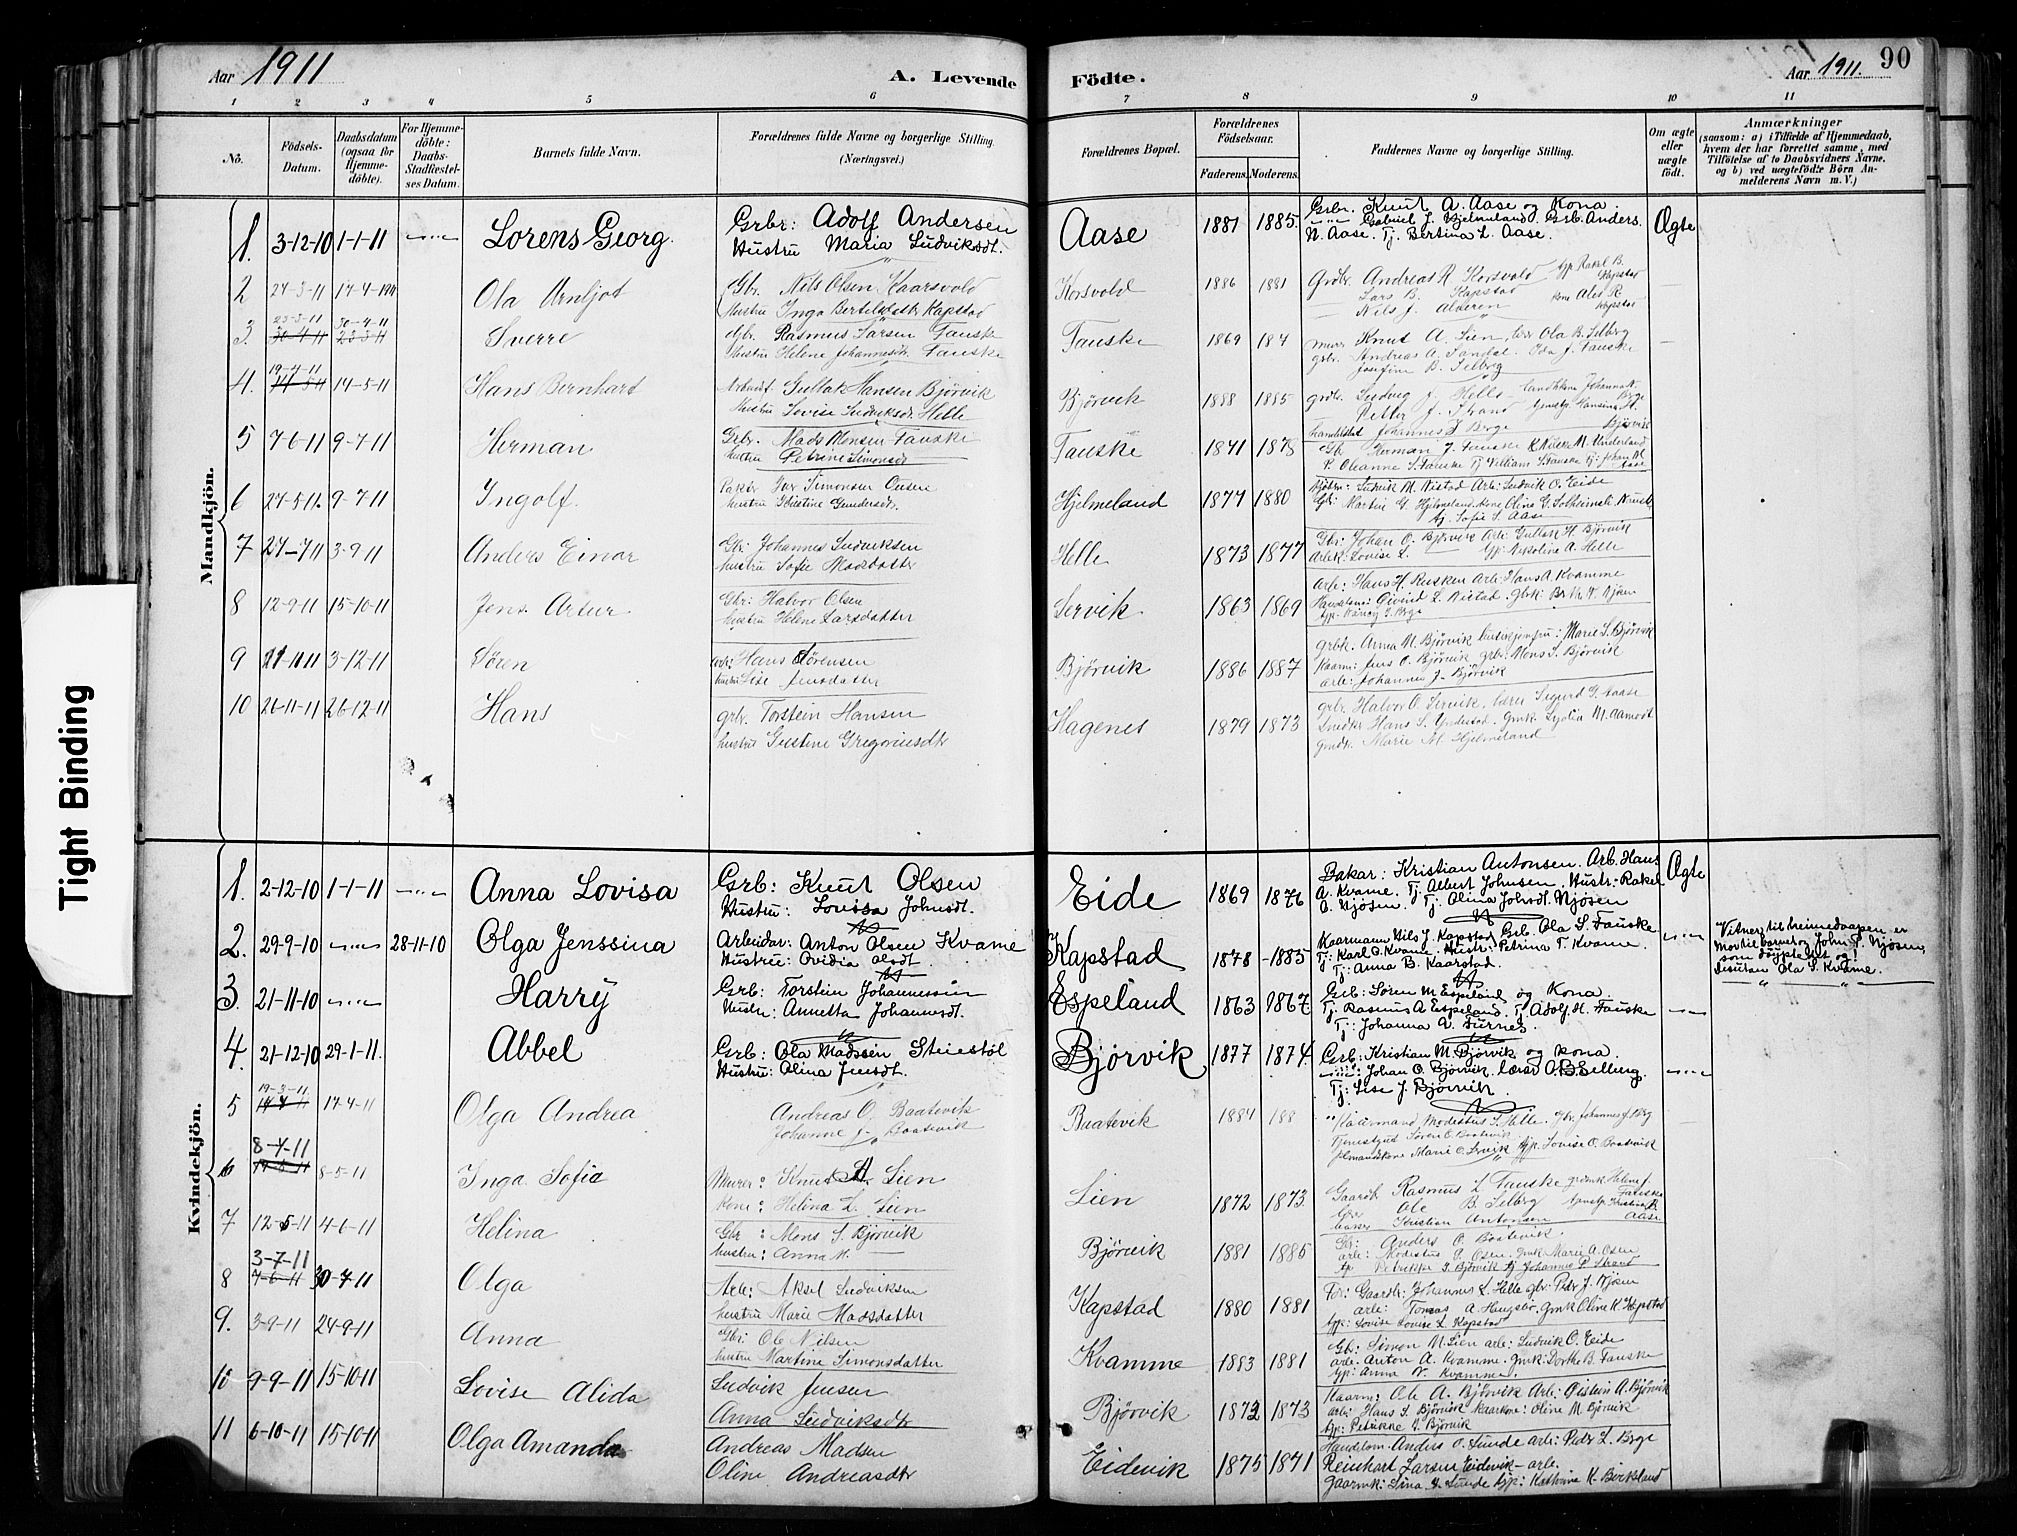 Aar 1911
A. Levende
Födte.
Aar 1911.
90
1 2 3 4 5 6 7 8 9 10 11
No.
Födsels-
Datum.
Daabsdatum
(ogsaa for
Hjemme-
döbte).
For Hjemme-
döbte:
Daabs-
Stadfestel-
ses Datum.
Barnets fulde Navn.
Forældrenes fulde Navne og borgerlige Stilling.
(Næringsvei.)
Forældrenes Bopæl.
Forældrenes
Födselsaar.
Faderens.
Moderens.
Faddernes Navne og borgerlige Stilling.
Om ægte
eller
uægte
födt.
Anmærkninger
(saasom: a) i Tilfælde af Hjemmedaab,
hvem der har forrettet samme, med
Tilföielse af to Daabsvidners Navne,
og b) ved uægtefödte Börn An-
melderens Navn m. V.)
Mandkjön.
1. 3-12-10 1-1-11 Lorens Georg.
Grbr: Adolf Andersen
Hustru Maria Ludviksdt.
Aase 1881 1885.
Grbr. Knut A. Aase og Kona.
Gabriel J. Hjelmeland. Grb. Anders
N. Aase. Tj. Bertina L. Aase.
Ægte
2 17-4-1911 Ola Arnljot
Gbr. Nils Olsen Kaarsvold
Hustru Inga Bertelsdatter Kapstad
Korsvold 1886 1881
Grdbr. Andreas R. Korsvold
Lars B. Kapstad
Nils J. Alveren
3. 23-3-11 30-4-11 Sverre
Gbr. Rasmus Larsen Fauske
Hustru Helene Johannesdt. Fauske
Fauske 1869
Knut A. Lien, Ola B. Selberg
Andreas A. Sandal. Ida J. Fauske
Josefine B. Selberg
4. 14-5-11 Hans Bernhart
Arbeidr. Gullak Hansen Björvik
Hustru Lovise Ludviksdr. Helle
Björvik 1888 1885
grdbr. Ludvig J. Helle
Petter J. Strand
Johannes J. Berge
5 7-6-11 9-7-11 Herman
Grbr. Mads Monsen Fauske
hustru Petrine Simonsdr
Fauske 1871 1878
Gb Herman J. Fauske
Oleanne S. Fauske Tj William S. Fauske
6 27-5-11. 9-7-11 Ingolf.
hustru Kristine Gundersdr.
Hjelmeland 1877 1880
Ludvik M. Nistad Arb: Ludvik O. Eide
Gb: Martin G. Hjelmeland
tj. Sofie S. Aase
7 27-7-11 3-9-11 Anders Einar
Gbr: Johannes Ludviksen
hustru Sofie Madsdatter
Helle 1873 1877
Gbr: Johan O. Björvik Arb: Gullak H. Björvik
Nikoline A. Helle
8 12-9-11 15-10-11 Jens Artur
Gbr: Halvor Olsen
hustru Helene Larsdatter
Servik 1863 1869
Arb: Hans H. Rusken Arb: Hans A. Kvamme
Öivind L. Nistad
9 3-12-11 Sören
arb: Hans Sörensen
hustru Lise Jensdatter
Björvik 1886 1887
grbk. Anna M. Björvik Marie S. Björvik
Kaarm: Jens O. Björvik grbr. Mons S. Björvik
arb: Johannes J. Björvik
10 26-11-11 26-12-11 Hans
grbr. Torstein Hansen
hustru Gustine Gregoriusdtr
Hagenes 1879 1873
grbr. Halvor O. Servik, lærer Sigurd G. Aase
Marie M. Hjelmeland
Kvindekjön.
1. 2-12-10 1-1-11 Anna Lovisa
Grb: Knut Olsen
Hustru: Lovisa Johnsdt.
Eide 1869 1876
Bakar: Kristian Antonsen. Arb. Hans
A. Kvame. Tj. Albert Johnsen. Hustr: Rakel
O. Njösen. Tj. Alina Johsdt. Njösen
Ægte
2. 29-9-10 28-11-10 Olga Jenssina
Arbeidar: Anton Olsen Kvame
Hustru: Ovidia Olsdt.
Kapstad 1878 -1885
Kaarmann Nils J. Kapstad. Grb. Ola S. Fauske
Tj: Karl O. Kvame. Hustr: Petrina T. Kvame.
Tj: Anna B. Kaarstad.
Vitner til heimedaapen er
Mor til barnet og John P. Njösen,
som döypte det og!
Desutan Ola S. Kvame.
3. 21-11-10 Harry
Grb: Torstein Johannessen
Hustr: Annetta Johannesdt.
Espeland 1863 1867
Grb: Sören M. Espeland og Kona.
Tj. Rasmus A. Espeland. Tj. Adolf H. Fauske
Tj: Johanna A. Furnes.
4. 21-12-10 29-1-11. Abbel
Grb: Ola Madssen Steiestöl
Hustru: Olina Jensdt.
Björvik 1877 1874.
Grb: Kristian M. Björvik og kona.
Johan O. Björvik. lærar O. B. Selberg.
Tj: Lise J. Björvik.
5 19-3-11 17-4-11 Olga Andrea
Andreas O. Baatevik
Johanne J. Baatevik
Baatevik 1884 188
Kaarmand Modestus S. Helle.
Tjenestgut Sören O. Baatevik
Marie O. Servik Lovise O. Baatevik
6 8-4-11 8-5-11 Inga Sofie
Murer: Knut A. Lien
Kone: Helina L. Lien
Lien 1872 1873.
Gaardb. Rasmus L. Fauske
Ole B. Selberg
baker Kristian Antonsen
7 12-5-11 4-6-11 Helina
Gbr: Mons S. Björvik
hustru: Anna M.
Björvik 1881 1885
Gb: Anders O. Baatevik
arb: Modestus A. Osen. Gmk: Marie A. Osen
Petrikke S. Björvik tj Johannes P. Strand
8 3-7-11 30-7-11 Olga
Arb: Aksel Ludviksen
hustru Marie Madsdatter
Kapstad 1880 1881
Gaardbr: Johannes L. Helle gbr: Petr J. Njösen
Lovise L. Kapstad
9. 3-9-11 24-9-11 Anna
Gbr: Ole Nilsen
hustru Martine Simonsdatter
Kvamme 1883 1881
Gb: Simon M. Lien arb: Ludvik O. Eide
arb: Anton A. Kvamme. Gmk: Dorthe B. Fauske
tjp: Anna N. Kvamme.
10 9-9-11 15-10-11 Lovise Alida
Ludvik Jensen
Anna Ludviksdtr
Björvik 1872 1873
Kaarm: Ole A. Björvik Arb: Öistein A. Björvik
arb: Hans S. Björvik kaarkone: Oline M. Björvik
tjp: Petrikke G. Björvik
11 6-10-11 15-10-11 Olga Amanda
Andreas Madsen
Oline Andreasdtr
Eidevik 1875 1871
Handelsm. Anders O. Sunde arb: Petr L. Berge
Reinhart Larsen Eidevik - arb.
Sina G. Sunde tjp: Kathrine K. Birkeland
Tight Binding